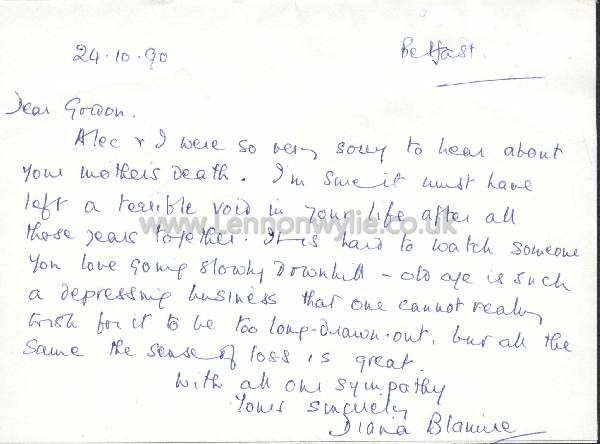 24.10.90 Belfast.
Dear Gordon.
Alec & I were so very sorry to hear about
your mother's death. I'm sure it must have
left a terrible void in your life after all
www.Lennonwylie.co.uk
those years together. It is hard to watch someone
you love going slowly downhill - old age is such
a depressing business that one cannot really
wish for it to be too long-drawn-out, but all the
same the sense of loss is great.
With all our sympathy
Yours sincerely
Diana